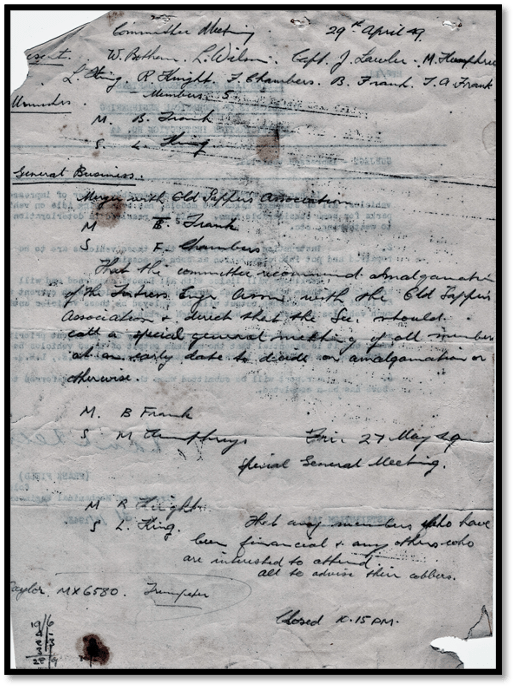 Committee Meeting 29th April 49
Present. W. Bethom. L. Wilson. Capt. J. Lawler. M. Humphre
L. King. R. Knight. F. Chambers. B. Frank. T. A Frank
Members 5.
Minutes.
M. B. Frank
S L. King
General Business.
Merger with Old Sappers Association
M B. Frank
S F. Chambers
That the committee recommend amalgamation
of the Fortress Engr Assn. with the Old Sappers
Association & direct that the Sec. should
call a special general meeting of all members
at an early date to decide on amalgamation or
otherwise.
M. B Frank
S M Humphreys Fri. 27 May 49
Special General Meeting.
M R Knight
S L. King. That any members who have
been financial & any others who
are interested to attend.
all to advise their cobbers.
Taylor. MX6580. Trumpeter
Closed 10.15 PM.